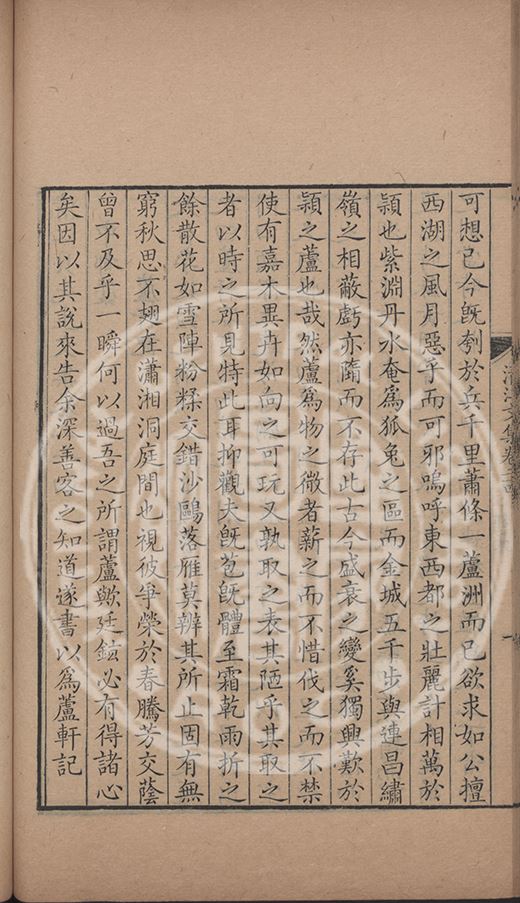 可想已今旣刳於兵千里蕭條一蘆洲而已欲求如公擅
西湖之風月惡乎而可邪嗚呼東西都之壯麗計相萬於
潁也紫淵丹水奄爲狐兔之區而金城五千步與連昌繡
嶺之相蔽虧亦隋而不存此古今盛衰之變奚獨興歎於
潁之蘆也哉然蘆爲物之微者薪之而不惜伐之而不禁
使有嘉木異卉如向之可玩又孰取之表其陋乎其取之
者以時之所見特此耳抑觀夫旣苞旣體至霜乾雨折之
餘散花如雪陣粉糅交錯沙鷗落雁莫辨其所止固有無
窮秋思不翅在瀟湘洞庭間也視彼爭榮於春騰芳交蔭
曾不及乎一瞬何以過吾之所謂蘆歟廷鉉必有得諸心
矣因以其說來告余深善客之知道遂書以爲蘆軒記